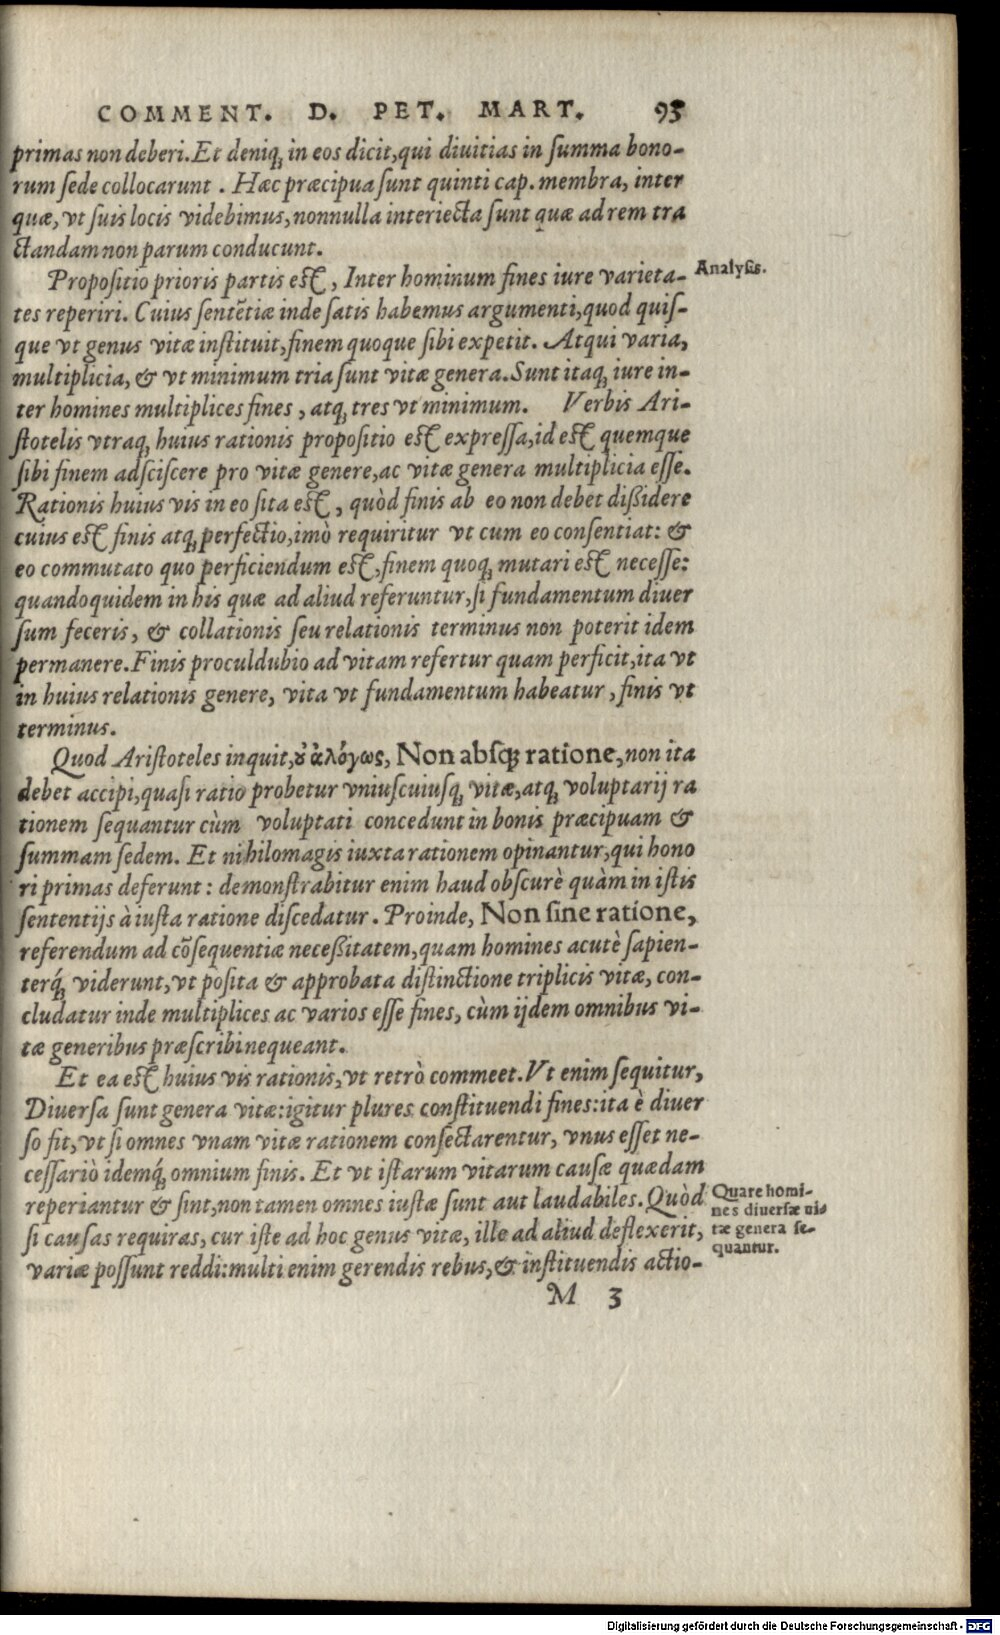 COMMENT. D. PET. MART. 93
primas non deberi. Et deniq; in eos dicit, qui diuitias in summa bono-
rum sede collocarunt. Hæc præcipua sunt quinti cap. membra, inter
quæ, vt suis locis videbimus, nonnulla interiecta sunt quæ ad rem tra
ctandam non parum conducunt.
Propositio prioris partis est, Inter hominum fines iure varieta-
Analysis.
tes reperiri. Cuius sentẽtiæ inde satis habemus argumenti, quod quis-
que vt genus vitæ instituit, finem quoque sibi expetit. Atqui varia,
multiplicia, & vt minimum tria sunt vitæ genera. Sunt itaq; iure in-
ter homines multiplices fines, atq; tres vt minimum. Verbis Ari-
stotelis vtraq; huius rationis propositio est expressa, id est quemque
sibi finem adsciscere pro vitæ genere, ac vitæ genera multiplicia esse.
Rationis huius vis in eo sita est, quòd finis ab eo non debet dißidere
cuius est finis atq; perfectio, imò requiritur vt cum eo consentiat: &
eo commutato quo perficiendum est, finem quoq; mutari est necesse:
quandoquidem in his quæ ad aliud referuntur, si fundamentum diuer
sum feceris, & collationis seu relationis terminus non poterit idem
permanere. Finis proculdubio ad vitam refertur quam perficit, ita vt
in huius relationis genere, vita vt fundamentum habeatur, finis vt
terminus.
Quod Aristoteles inquit, ȣ̓ ἀλόγως, Non absq; ratione, non ita
debet accipi, quasi ratio probetur vniuscuiusq; vitæ, atq; voluptarij ra
tionem sequantur cùm voluptati concedunt in bonis præcipuam &
summam sedem. Et nihilomagis iuxta rationem opinantur, qui hono
ri primas deferunt: demonstrabitur enim haud obscurè quàm in istis
sententijs à iusta ratione discedatur. Proinde, Non sine ratione,
referendum ad cõsequentiæ neceßitatem, quam homines acutè sapien-
terq́; viderunt, vt posita & approbata distinctione triplicis vitæ, con-
cludatur inde multiplices ac varios esse fines, cùm ijdem omnibus vi-
tæ generibus præscribi nequeant.
Et ea est huius vis rationis, vt retrò commeet. Vt enim sequitur,
Diuersa sunt genera vitæ: igitur plures constituendi fines: ita è diuer
so fit, vt si omnes vnam vitæ rationem consectarentur, vnus esset ne-
cessariò idemq́; omnium finis. Et vt istarum vitarum causæ quædam
reperiantur & sint, non tamen omnes iustæ sunt aut laudabiles. Quòd
si causas requiras, cur iste ad hoc genus vitæ, ille ad aliud deflexerit,
variæ possunt reddi: multi enim gerendis rebus, & instituendis actio-
Quare homi-
nes diuersæ ui-
tæ genera se-
quantur.
M 3
Digitalisierung gefördert durch die Deutsche Forschungsgemeinschaft - DFG